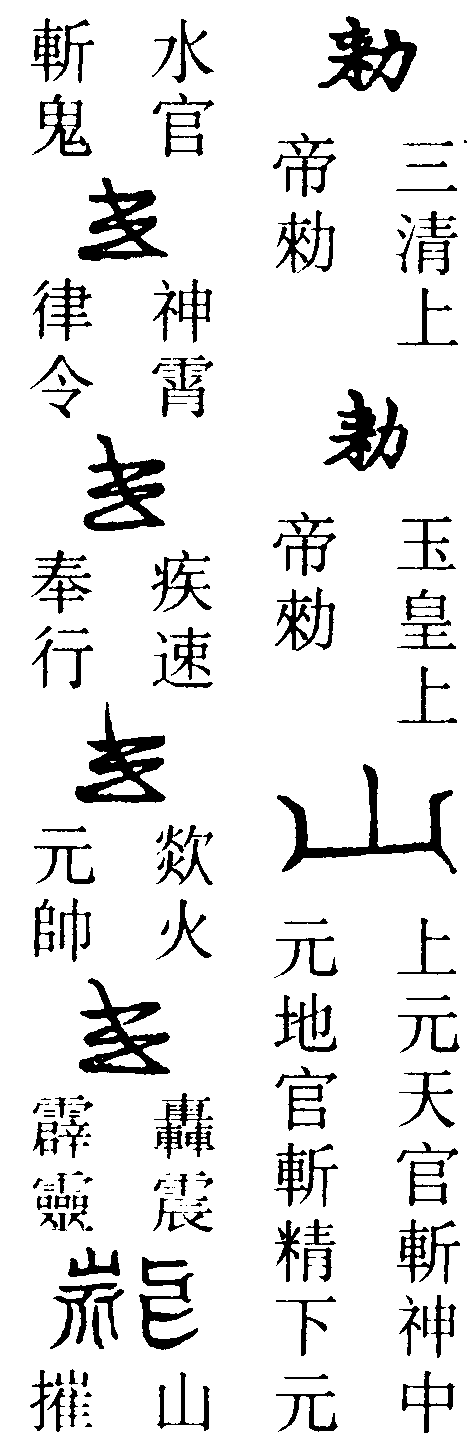 勅
三清上
帝勑
勅
玉皇上
帝勑
上元天官斬神中
元地官斬精下元
水官
斬鬼
神霄
律令
疾速
奉行
欻火
元帥
轟震
霹靈
山
摧